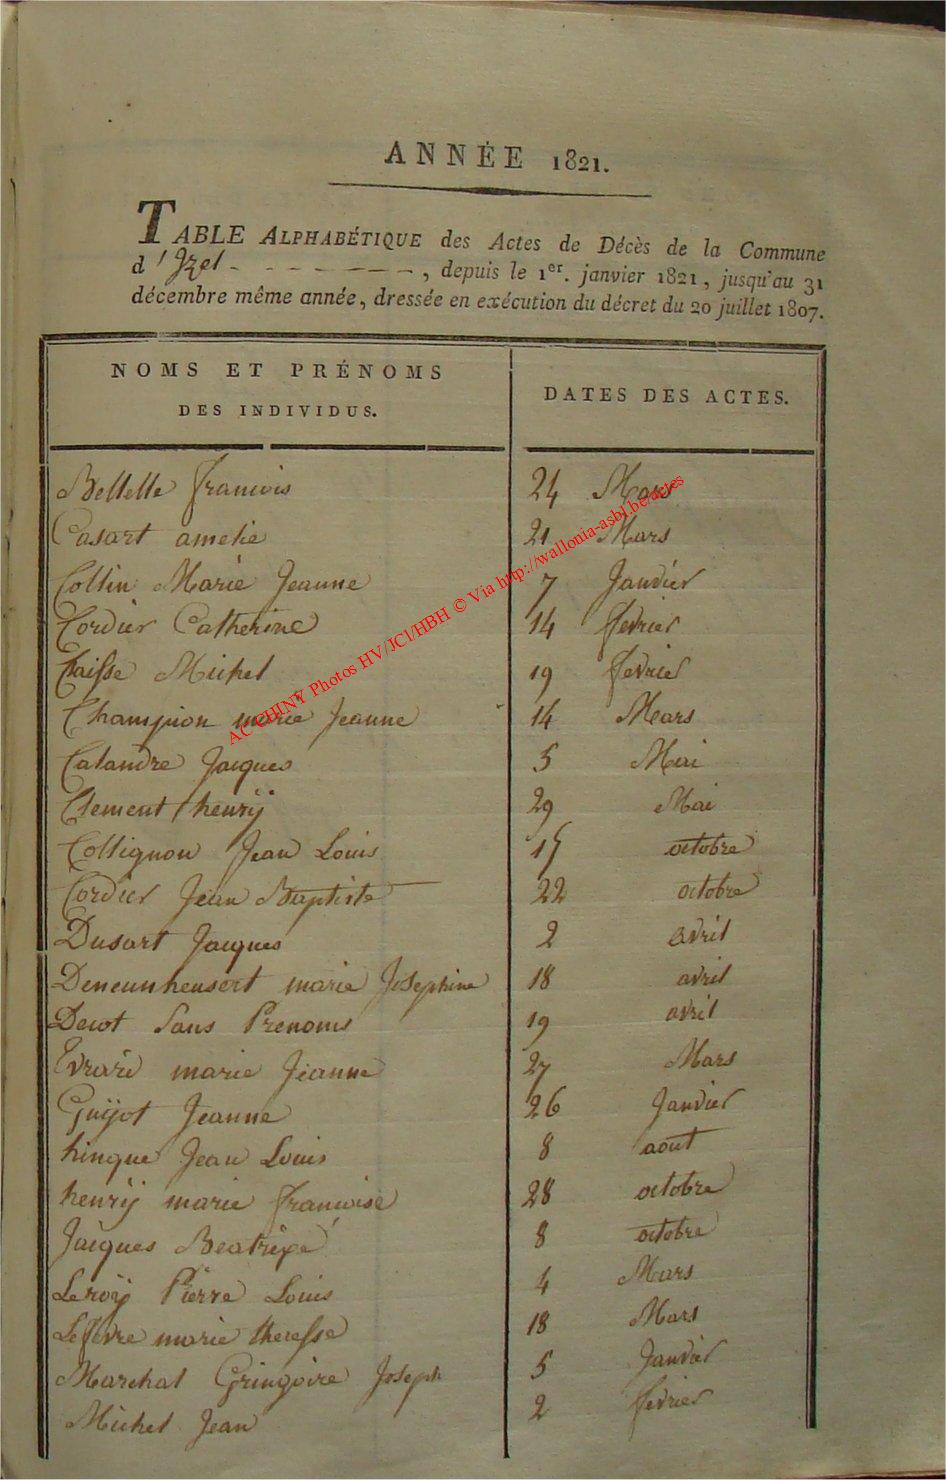 ANNÉE 1821.
TABLE ALPHABÉTIQUE des Actes de Décès de la Commune
d'Izel - - - - - - - -, depuis le 1er. janvier 1821, jusqu'au 31
décembre même année, dressée en exécution du décret du 20 juillet 1807.
NOMS ET PRÉNOMS
DES INDIVIDUS.
DATES DES ACTES.
Bellelle francois 24 Mars
Casart amelie 21 Mars
Collin Marie Jeanne 7 Janvier
Cordier Catherine 14 fevrier
Chaisse Michel 19 fevrier
Champion marie Jeanne 14 Mars
Calandre Jacques 5 Mai
Clement henrÿ 29 Mai
Collignon Jean Louis 15 octobre
Cordier Jean Baptiste 22 octobre
Dusart Jacques 2 avril
marie Josephine 18 avril
Decot Sans Prenoms 19 avril
Evrard marie Jeanne 27 Mars
Guÿot Jeanne 26 Janvier
hinque Jean Louis 8 aout
henrÿ marie francoise 28 octobre
Jacques Beatrixe 8 octobre
Leroÿ Pierre Louis 4 Mars
Lefevre marie theresse 18 Mars
Marchal Gringoire Joseph 5 Janvier
Michel Jean 2 fevrier
AC CHINY Photos HV/JCl/HBH © Via http://wallonia-asbl.be/actes